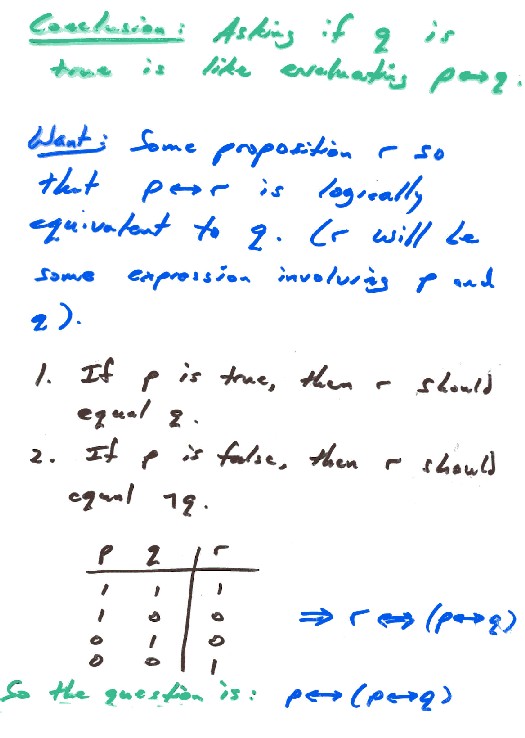 Conclusion: Asking if q is
true is like evaluating p↔q.
Want: Some proposition r so
that p↔r is logically
equivalent to q. (r will be
some expression involving p and
q).
1. If p is true, then r should
equal q.
2. If p is false, then r should
equal ¬q.
p q r
1 1 1
1 0 0 ⇒ r ⇔ (p↔q)
0 1 0
0 0 1
So the question is: p↔(p↔q)